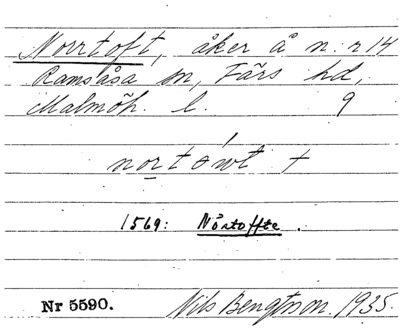 Norrtoft, åker å n:r 14
Ramsåsa sn, Färs hd,
Malmöh. l. 9
nortówt +
1569: Nörtoffte.
Nr 5590. Nils Bengtsson. 1935.